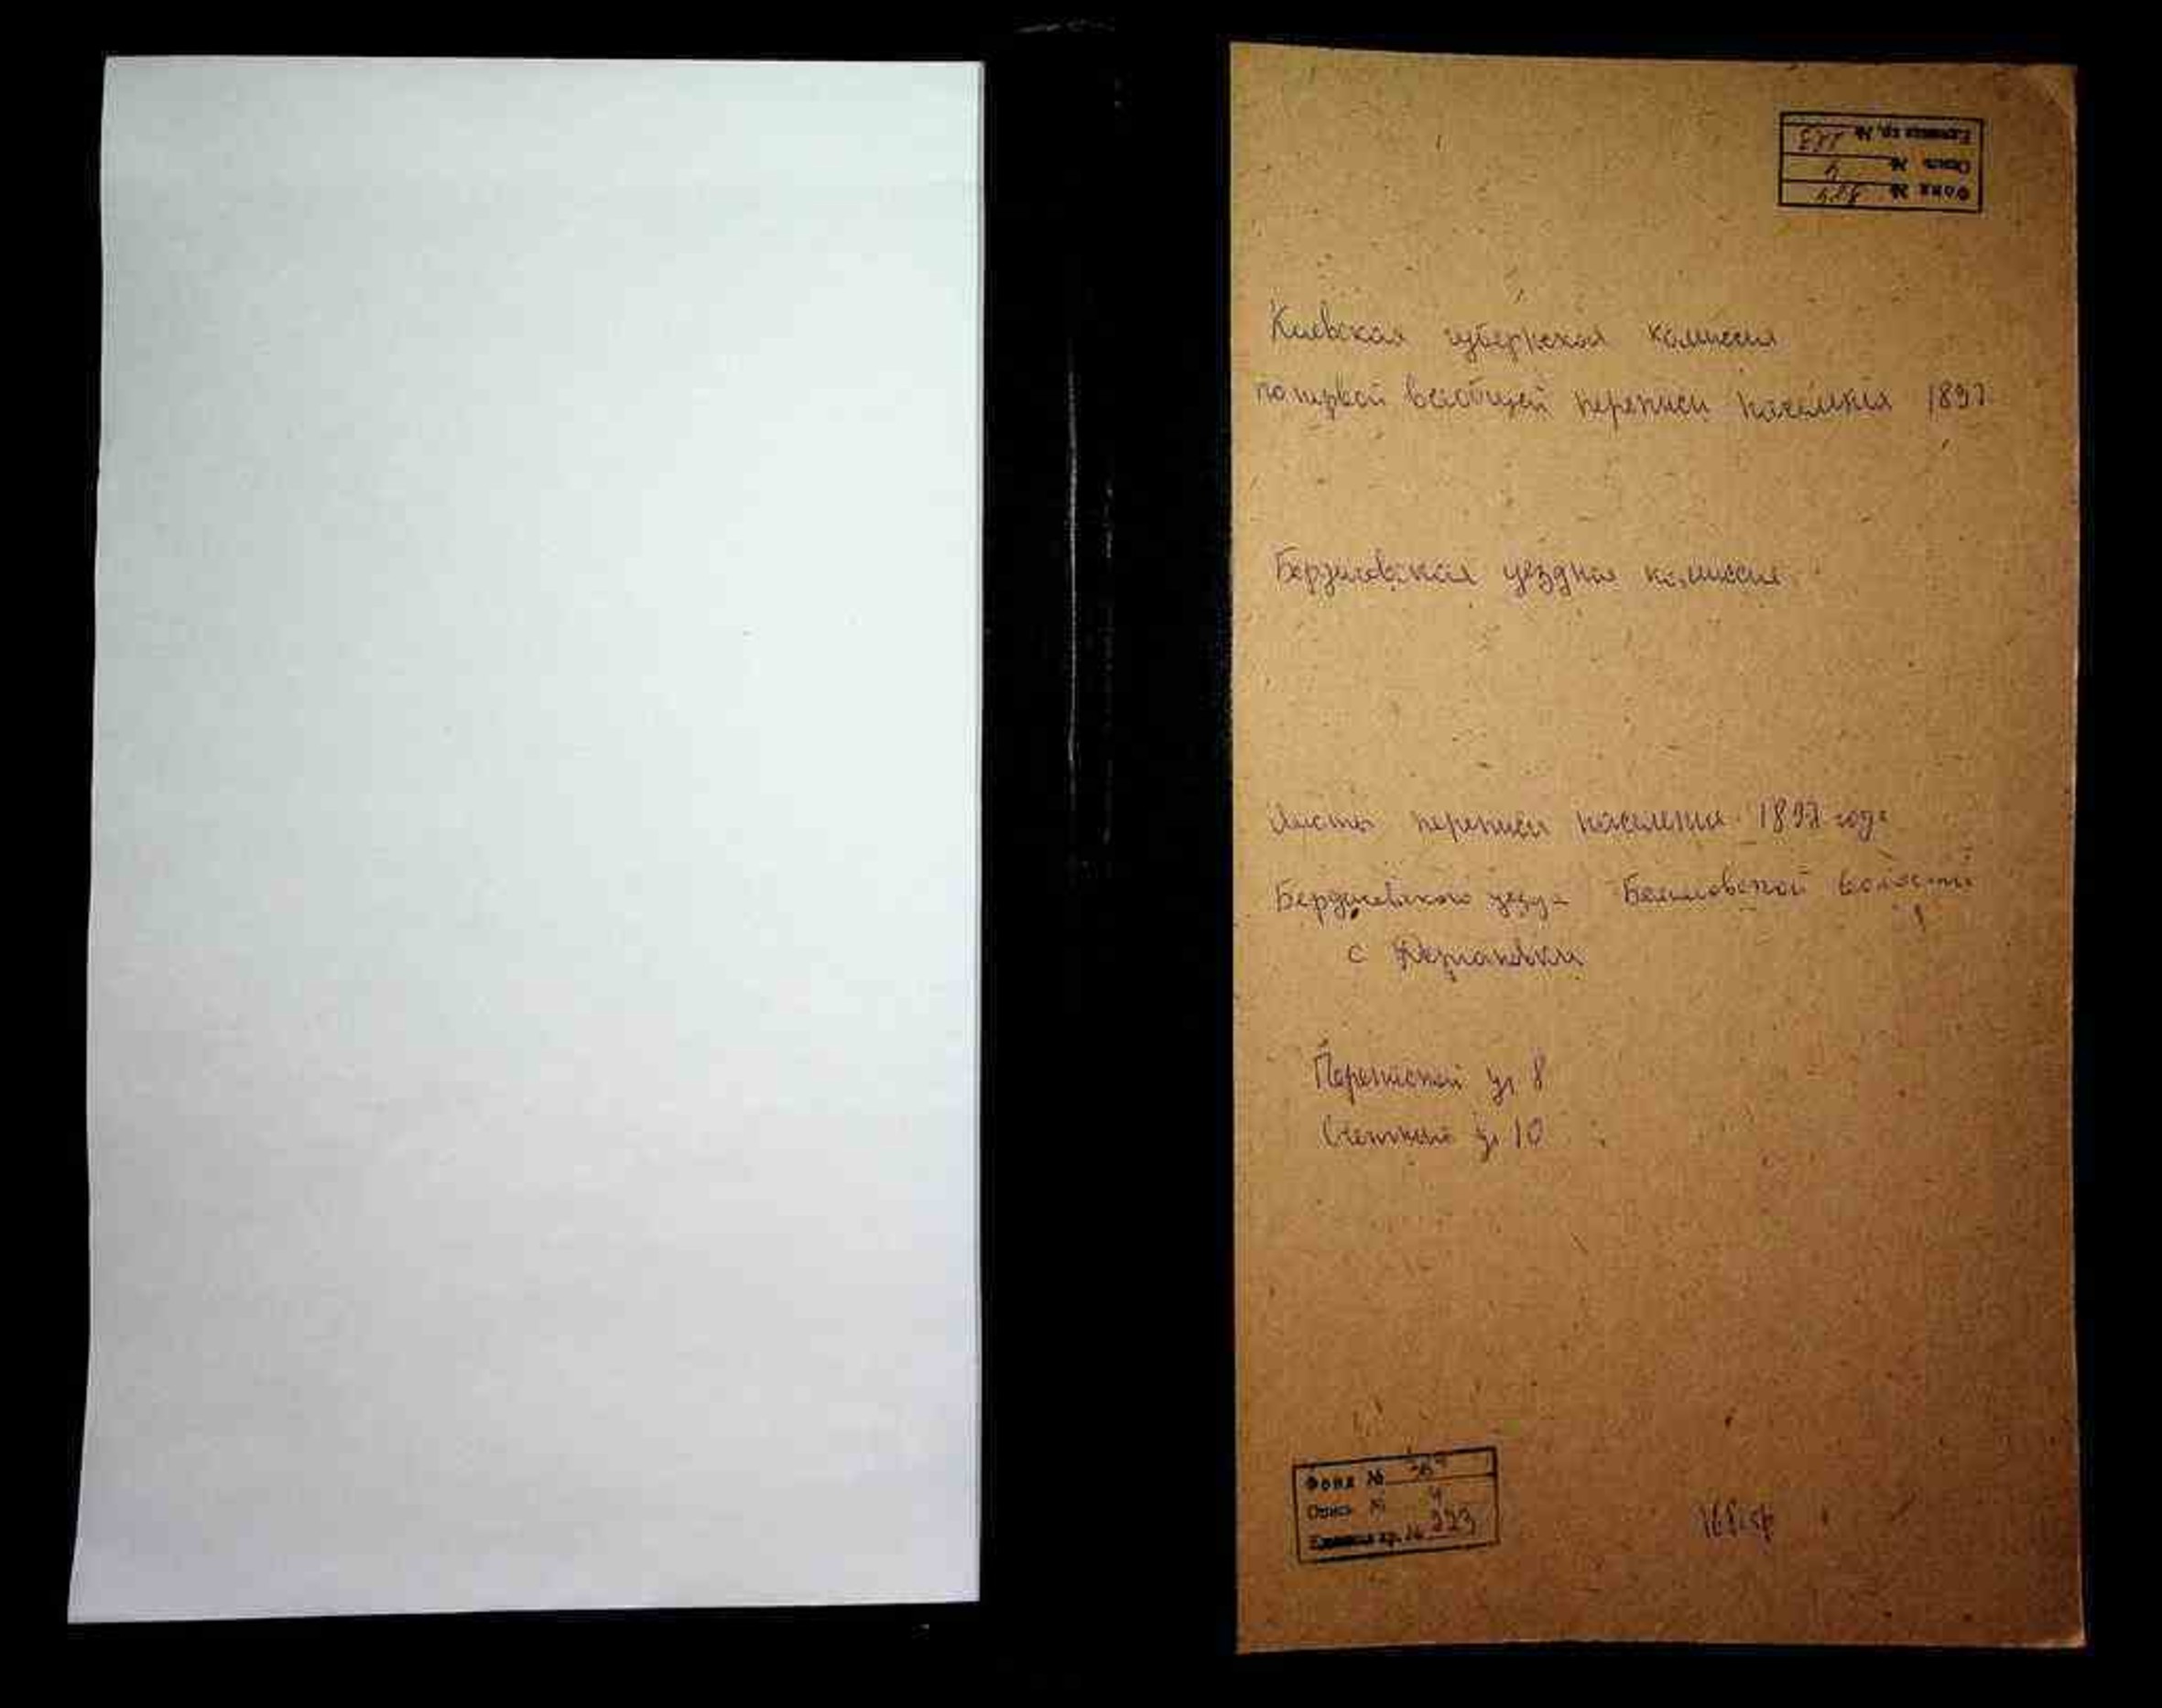 Единица хр. № 223
Опись № 4
Фонд №
Киевская губернская комиссия
по первой всеобщей переписи населения 1897
Бердичевская уездная комиссия
Листы переписи населения 1897 года
Бердичевского уезда волости
с
Переписной уч 8
Счетный уч 10
Фонд №
Опись № 4
Единица хр. № 223